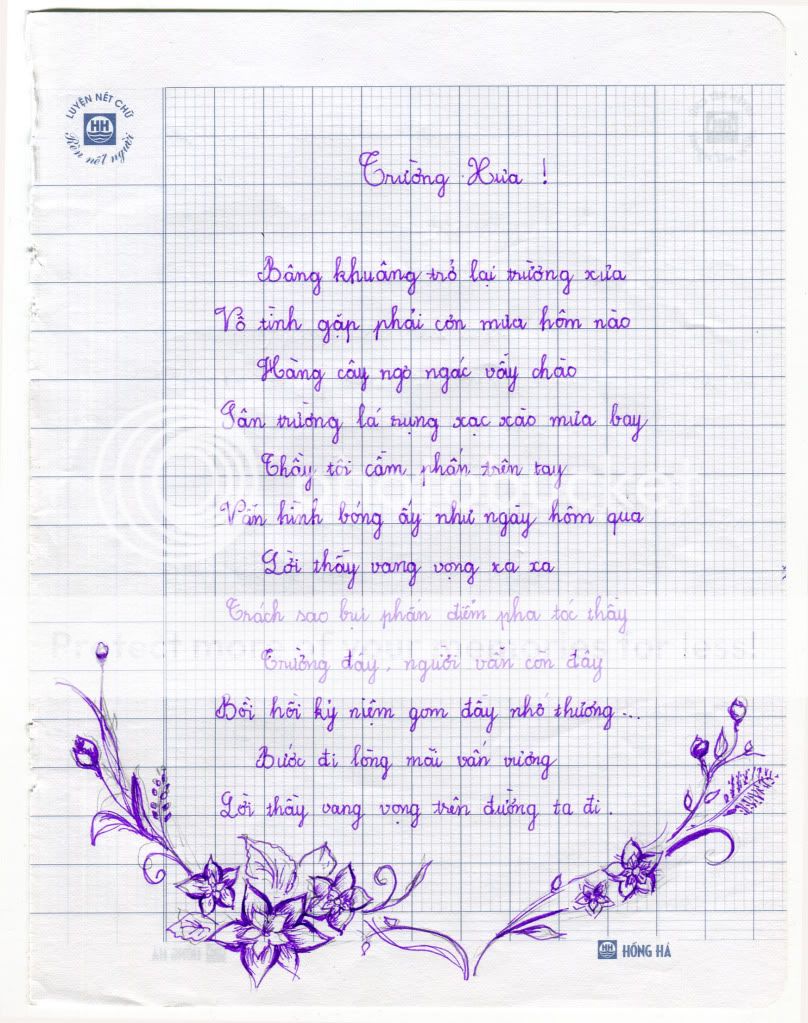 LUYỆN NÉT CHỮ
HH
Rèn nết người
Trường Xưa !
Bâng khuâng trở lại trường xưa
Vô tình gặp phải cơn mưa hôm nào
Hàng cây ngơ ngác vẫy chào
Sân trường lá rụng xạc xào mưa bay
Thầy tôi cầm phấn trên tay
Vẫn hình bóng ấy như ngày hôm qua
Lời thầy vang vọng xa xa
Trách sao bụi phấn điểm pha tóc thầy
Protect more of your memories for less!
Trường đây, người vẫn còn đây
Bồi hồi kỷ niệm gom đầy nhớ thương...
Bước đi lòng mãi vấn vương
Lời thầy vang vọng trên đường ta đi.
HH HỒNG HÀ